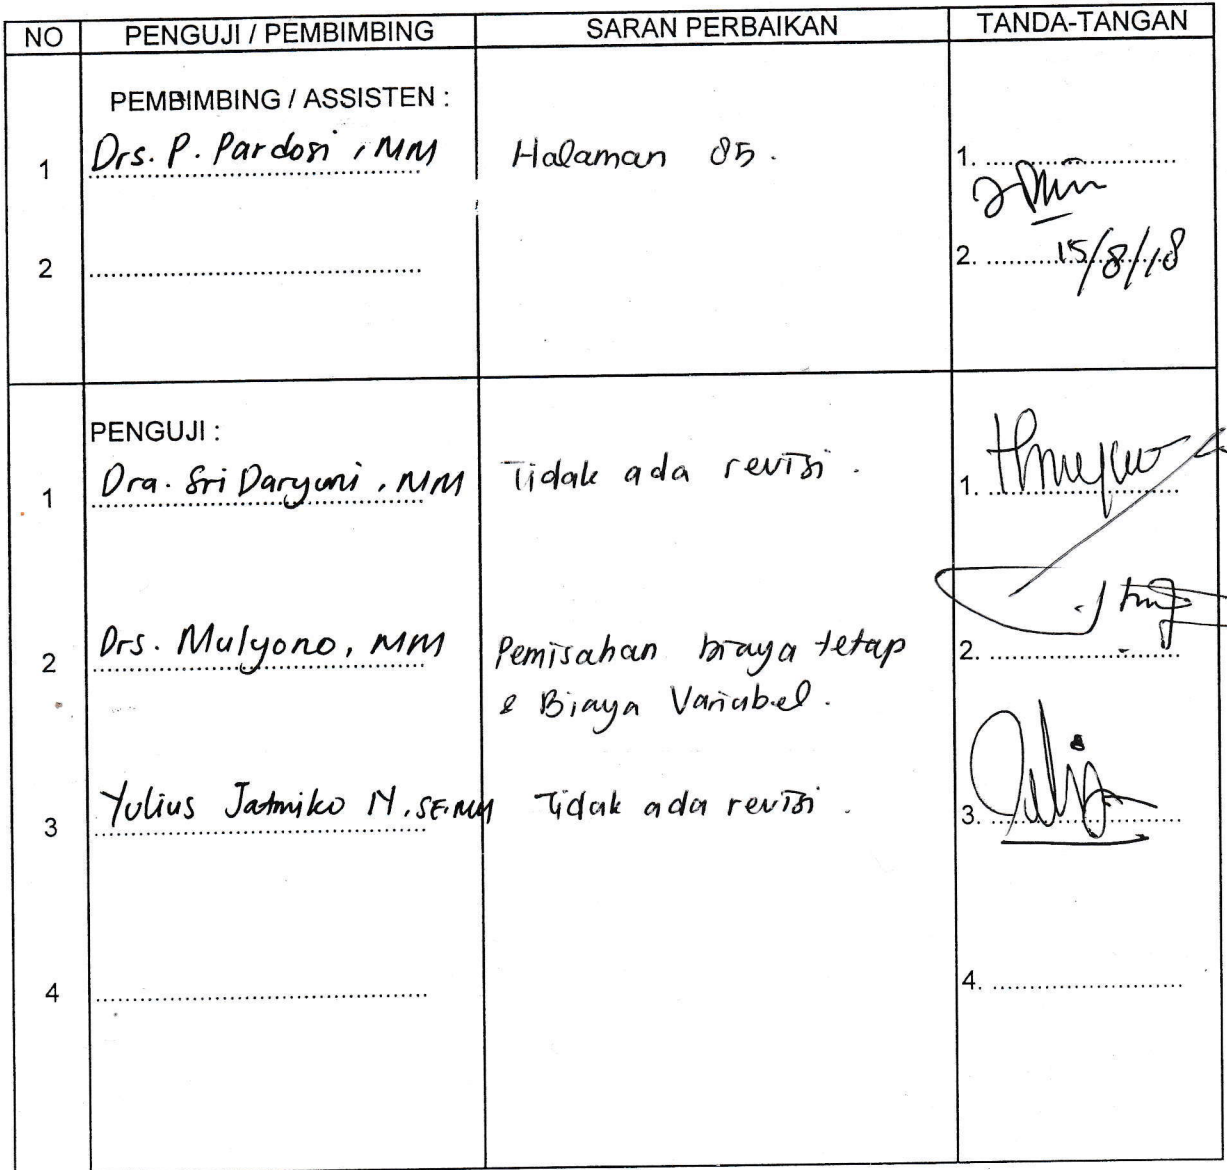 NO PENGUJI / PEMBIMBING SARAN PERBAIKAN TANDA-TANGAN
PEMBIMBING / ASSISTEN :
1 Drs. P. Pardosi, MM Halaman 85. 1. ........................
2 ........................ 2. ........................ 15/8/18
PENGUJI :
1 Dra. Sri Daryuni, MM Tidak ada revisi. 1. ........................
2 Drs. Mulyono, MM Pemisahan biaya tetap 2. ........................
& Biaya Variabel.
3 Yulius Jatmiko N, SE.MM Tidak ada revisi. 3. ........................
4 ........................ 4. ........................